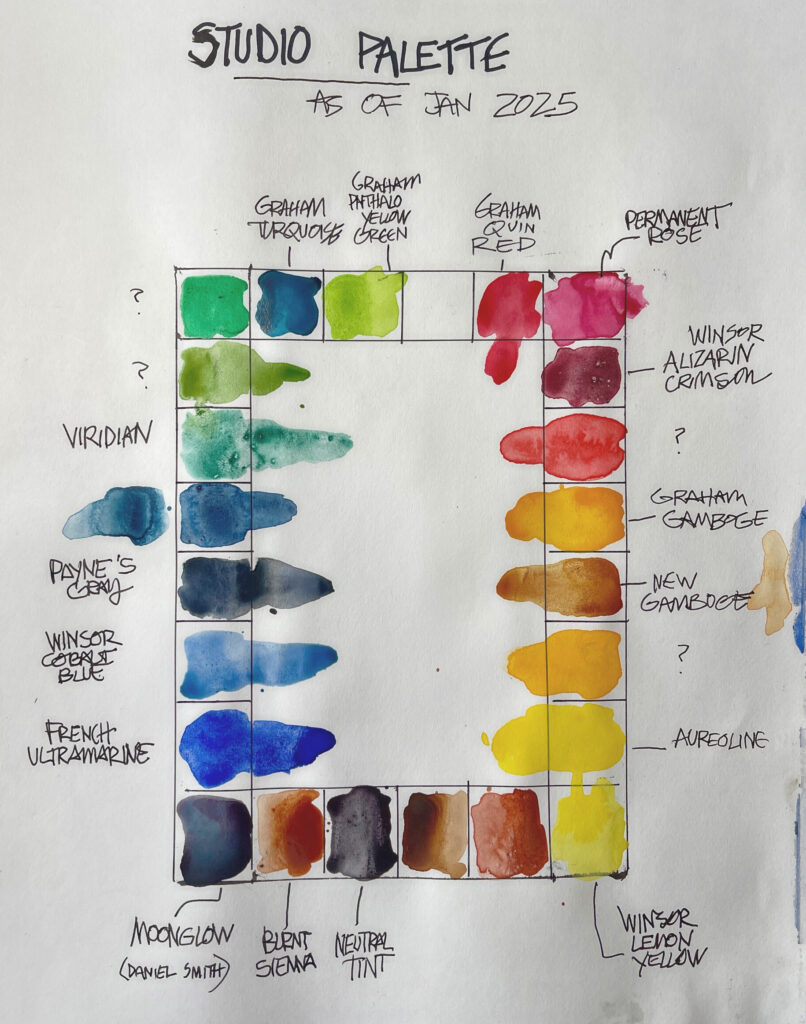 STUDIO PALETTE
AS OF JAN 2025
GRAHAM
TURQUOISE
GRAHAM
PHTHALO
YELLOW
GREEN
GRAHAM
QUIN
RED
PERMANENT
ROSE
?
?
VIRIDIAN
PAYNE'S
GRAY
WINSOR
COBALT
BLUE
FRENCH
ULTRAMARINE
WINSOR
ALIZARIN
CRIMSON
?
GRAHAM
GAMBOGE
NEW
GAMBOGE
?
AUREOLINE
MOONGLOW
(DANIEL SMITH)
BURNT
SIENNA
NEUTRAL
TINT
WINSOR
LEMON
YELLOW